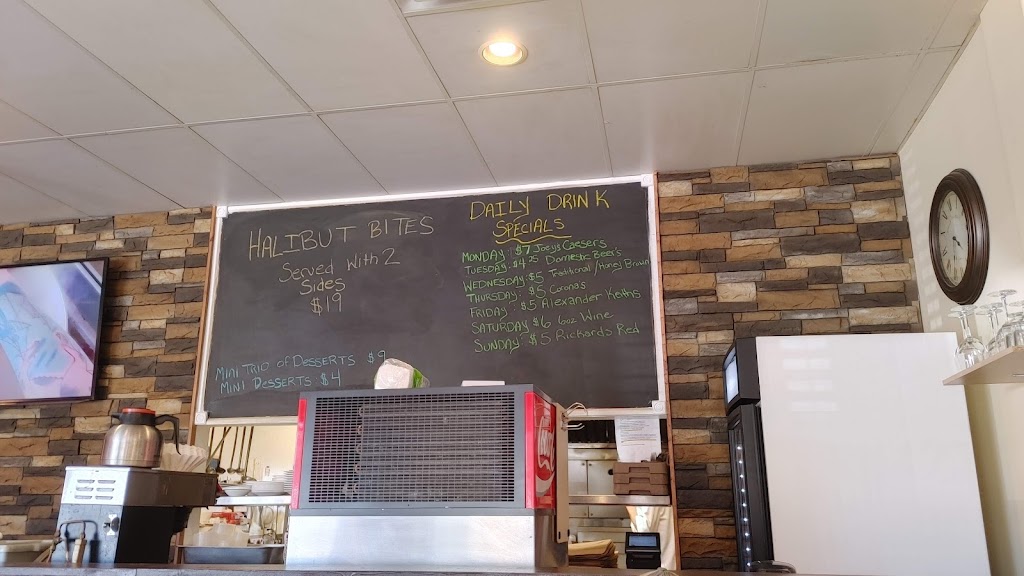 HALIBUT BITES
Served With 2
Sides
$19
MINI TRIO OF DESSERTS $9
MINI DESSERTS $4
DAILY DRINK
SPECIALS
MONDAY $7 Joeys Caesers
TUESDAY $4.25 Domestic Beer's
WEDNESDAY $5 Traditional/Honey Brown
THURSDAY $5 Corona's
FRIDAY $5 Alexander Keiths
SATURDAY $6 6oz Wine
SUNDAY $5 Richards Red